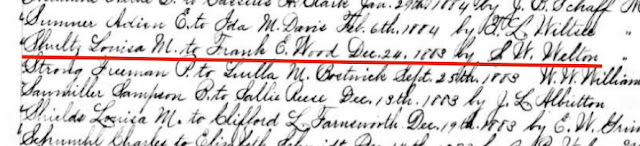 to Cassius H. Clark Jan. 29th 1884 by J. B. Schaff M
Sumner Adien E. to Ida M. Davis Feb. 6th 1884 by T. L. Wiltsee "
Shultz Louisa M. to Frank E. Wood Dec. 24. 1883 by S. W. Welton "
Strong Freeman P. to Luella M. Bostwick Sept. 25th 1883 W. W. William
Sawmiller Sampson P. to Sallie Reese Dec. 13th. 1883 by J. L. Albritton
Shields Louisa M. to Clifford L. Farnsworth Dec. 19th 1883 by E. W. Grin
Schrumbl Charles to Elizabeth Schmidt Dec.